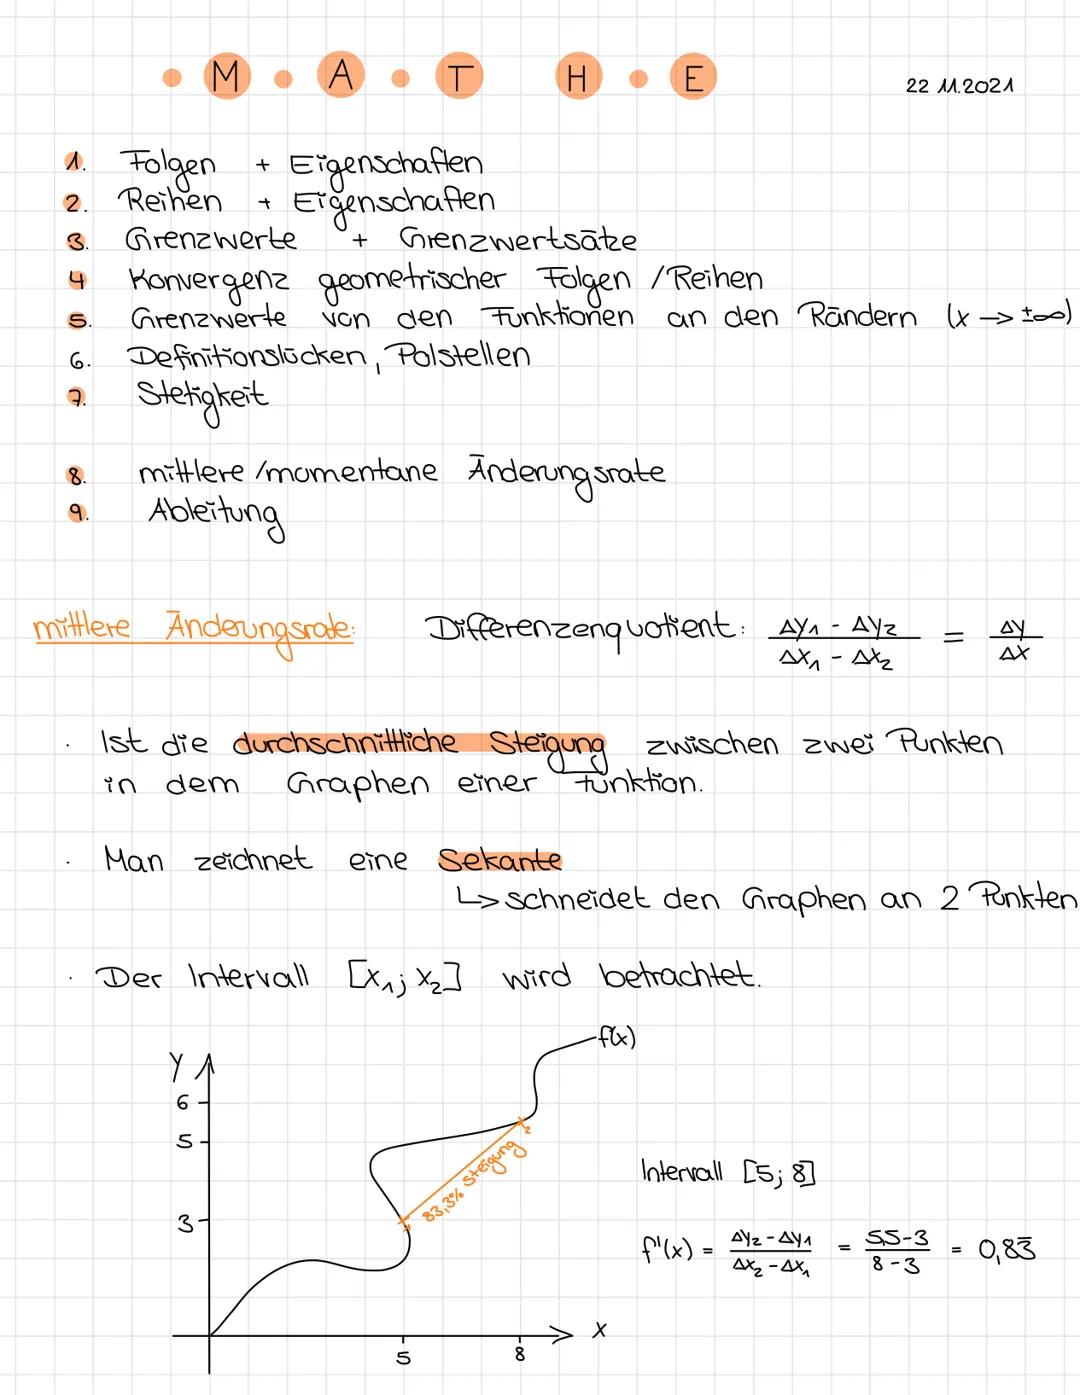 • M • A • T H • E
22 11.2021
1. Folgen + Eigenschaften
2. Reihen + Eigenschaften
3. Grenzwerte + Grenzwertsätze
4 Konvergenz geometrischer Folgen / Reihen
5. Grenzwerte von den Funktionen an den Rändern (x → ±∞)
6. Definitionslücken, Polstellen
7. Stetigkeit
8. mittlere / momentane Änderungsrate
9. Ableitung
mittlere Änderungsrate: Differenzenquotient: (Δy₁ - Δy₂)/(Δx₁ - Δx₂) = Δy/Δx
· Ist die durchschnittliche Steigung zwischen zwei Punkten
in dem Graphen einer Funktion.
· Man zeichnet eine Sekante
↳ schneidet den Graphen an 2 Punkten
· Der Intervall [x₁; x₂] wird betrachtet.
f(x)
y
6
5
3
83,3% Steigung
Intervall [5; 8]
f'(x) = (Δy₂ - Δy₁)/(Δx₂ - Δx₁) = (5,5-3)/(8-3) = 0,83̅
x
5
8